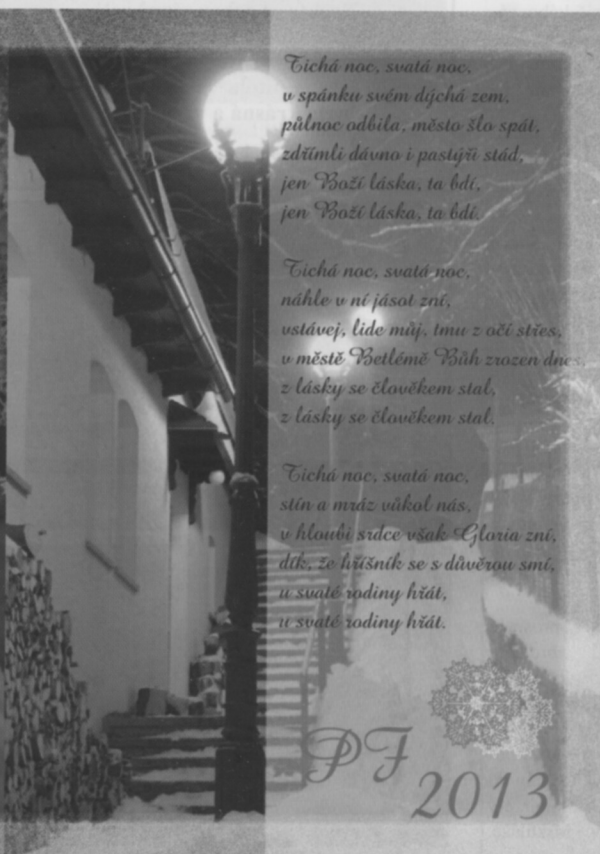 Tichá noc, svatá noc,
v spánku svém dýchá zem,
půlnoc odbila, město šlo spát,
zdřímli dávno i pastýři stád,
jen Boží láska, ta bdí,
jen Boží láska, ta bdí.
Tichá noc, svatá noc,
náhle v ní jásot zní,
vstávej, lide můj, tmu z očí střes,
v městě Betlémě Bůh zrozen dnes,
z lásky se člověkem stal,
z lásky se člověkem stal.
Tichá noc, svatá noc,
stín a mráz vůkol nás,
v hloubi srdce však Gloria zní,
dík, že hříšník se s důvěrou smí,
u svaté rodiny hřát,
u svaté rodiny hřát.
PF
2013